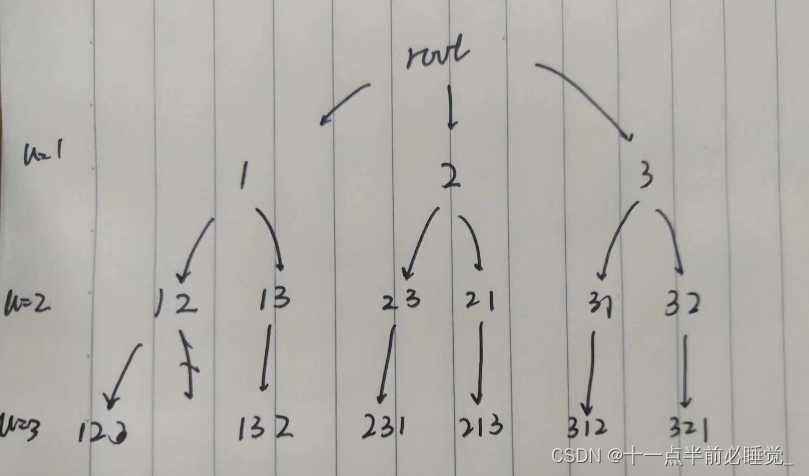 root
u=1 1 2 3
u=2 12 13 23 21 31 32
u=3 123 132 231 213 312 321
CSDN @十一点半前必睡觉_